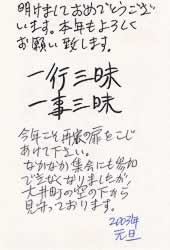 明けましておめでとうござ
います。本年もよろしく
お願い致します。
一行三昧
一事三昧
今年こそ再家の扉をこじ
あけて下さい。
なかなか集会にも参加
できなくなりましたが、
大井町の空の下から
見守っております。
2003年
元旦